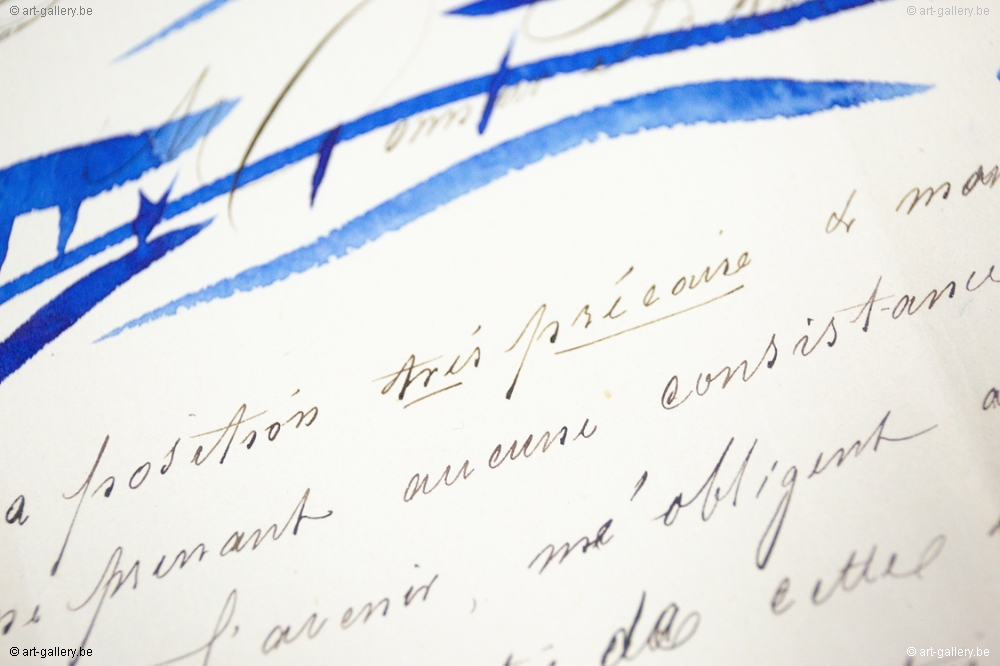 © art-gallery.be © art-gallery.be
Monsieur
a position très précaire & ma
ne prenant aucune consistance
l'avenir, m'obligent a
de cette
© art-gallery.be © art-gallery.be